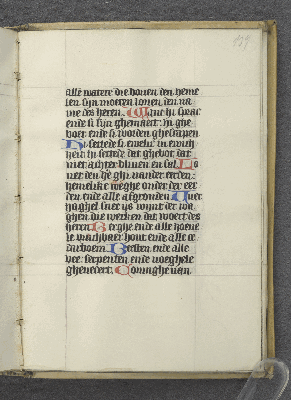 159
alle watere die bouen den heme
len sijn moeten louen den na
me des heren Want hi sprac
ende si sijn ghemaect hi ghe
boet ende si worden ghescapen
Hi settede si ewelic in ewich
heit hi settede dat ghebot dat
niet achter bliuen en sal
met den
hemelike weghe onder der eer
den ende alle afgronden Vuer
haghel snee ys wynt der
ghen die werken dat woert des
heren Berghe ende alle hoene
le vruchtbaer hout ende alle ce
derboem Beesten ende alle
vee serpenten ende voeghele
gheuedert Coninghe van